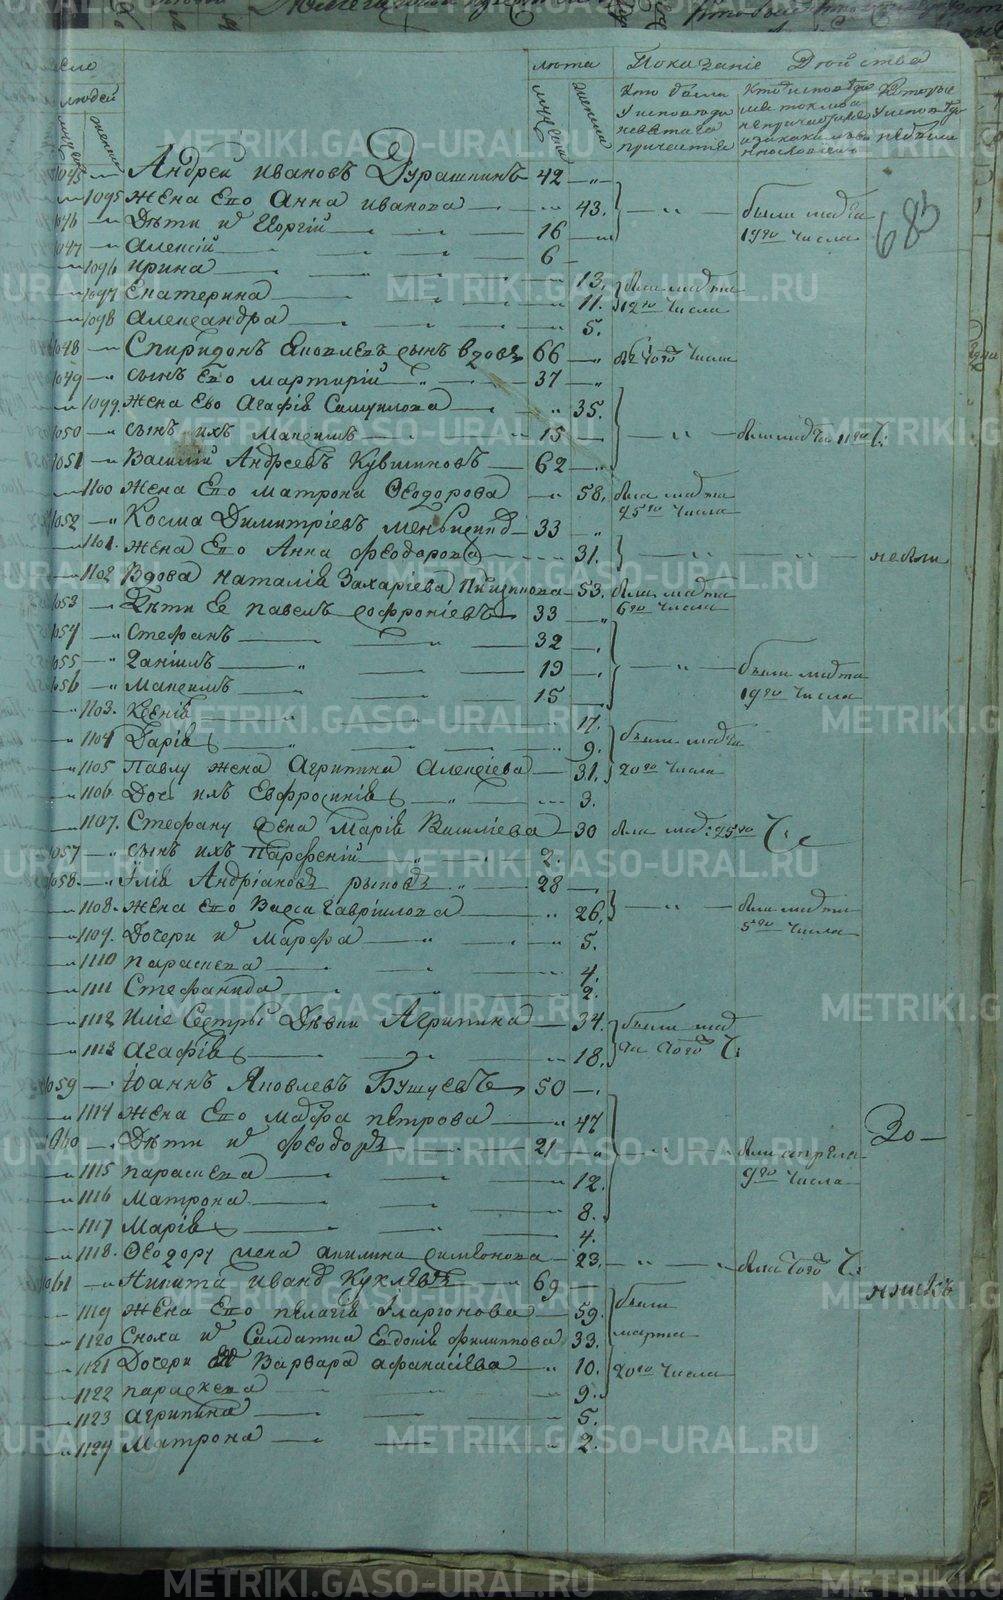 число людей
лѣта
Показаніе Дѣйства
мужеска
женска
мужеска
женска
Кто были у исповѣди и святаго причастія
Которые у исповѣди не были
683
1045 Андрей Ивановъ Дурашкинъ 42
1095 Жена Его Анна Иванова 43. были марта 19го числа
1046 Дѣти их Георгій 16
1047 Алексій 6
1096 Ирина 13. были марта
1097 Екатерина 11. 12го числа
1098 Александра 5.
1048 Спиридонъ Яковлевъ сынъ вдовъ 66 числа
1049 сынъ Его Мартирій 37
1099. Жена Ево Агафія Самуилова 35.
1050 сынъ ихъ Максимъ 15 были марта 11го Ч:
1051 Василій Андреевъ Кувшиновъ 62
1100 Жена Его Матрона Ѳеодорова 58. была марта 25го числа
1052 Косма Димитріевъ 33
1101. Жена Его Анна Феодорова 31. не были
1102 Вдова Наталія Захаріева 53. была марта
1053 Дѣти Ее Павелъ Софроніевъ 33 6го числа
1054 Стефанъ 32
1055 Даніилъ 19 были марта
1056 Максимъ 15 19го числа
1103. Ксенія 17.
1104 Дарія 9. были марта
1105 Павлу жена Агрипина Алексіева 31. 20го числа
1106 Доч. ихъ Евфросинія 3.
1107. Стефану Жена Марія Василіева 30 была мар: 25го Ч:
1057 сынъ ихъ Парфеній 2.
1058. Илія Андріановъ Рыковъ 28
1108. Жена Его Васса Гавріилова 26. были марта
1109. Дочери их Марфа 5. 5го числа
1110 Параскева 4.
1111 Стефанида 2.
1112 Иліе Сестры Дѣвки Агрипина 34. были мар
1113 Агафія 18. та 20го Ч:
1059 Іоаннъ Яковлевъ Бушуевъ 50
1114 Жена Его Марфа Петрова 47
30
1060 Дѣти их Феодоръ 21 были апреля
1115 Параскева 12. 9го числа
1116 Матрона 8.
1117 Марія 4.
1118. Ѳеодору жена Акилина Симеонова 23. была Ч:
1061 Никита Иванов Куклевъ 69
1119 Жена Его Пелагія Иларионова 59. были
1120 Сноха их Салдатка Евдокія Филиппова 33. марта
1121 Дочери Ея Варвара Афанасіева 10. 20го числа
1122 Параскева 9.
1123 Агрипина 5.
1124 Матрона 2.
METRIKI.GASO-URAL.RU